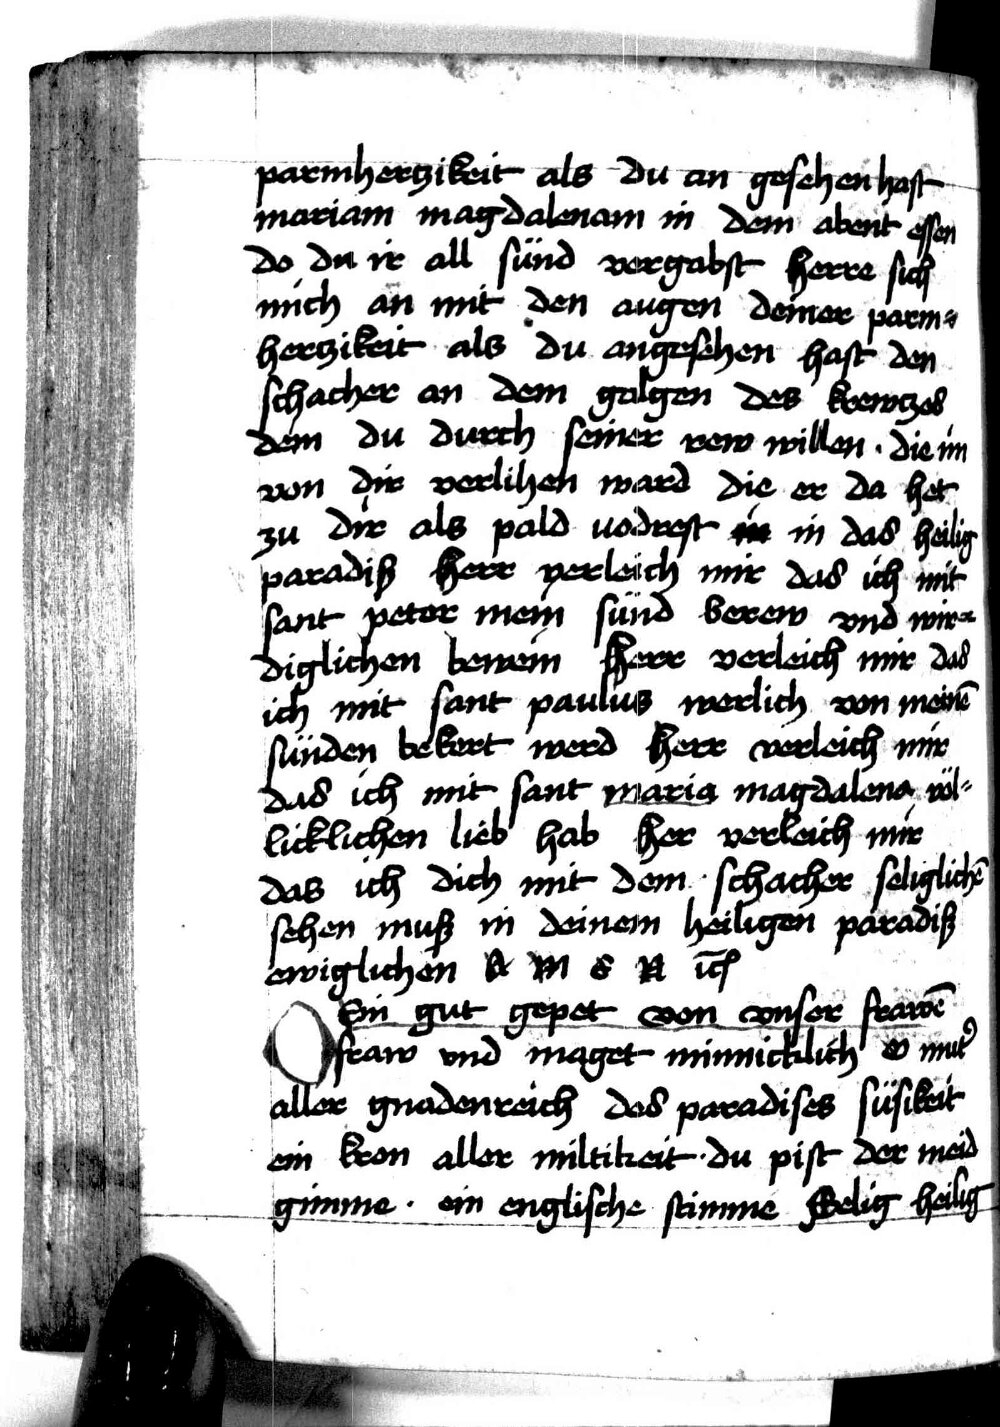 parmhertzikeit als du an gesehen hast
mariam magdalenam in dem abent essen
do du ir all sünd vergabst herre sich
mich an mit den augen deiner parm=
hertzikeit als du angesehen hast den
schacher an dem galgen des krewtzes
dem du durch seiner rew willen · die im
von dir verlihen ward die er da het
zu dir als pald vodrest in in das heilig
paradiß herr verleich mir das ich mit
sant peter mein sünd berew vnd wir=
diglichen bewein herr verleich mir das
ich mit sant paulus werlich von meinē
sünden bekert werd herr verleich mir
das ich mit sant maria magdalena völ=
licklichen lieb hab her verleich mir
das ich dich mit dem schacher seliglichē
sehen muß in deinem heiligen paradiß
ewiglichen A M E N
Ein gut gepet von vnser frawē
O fraw vnd maget minnicklich o mut'
aller gnadenreich des paradises süsikeit
ein kron aller miltikeit · du pist der meid
gimme · ein englische stimme Selig heilig